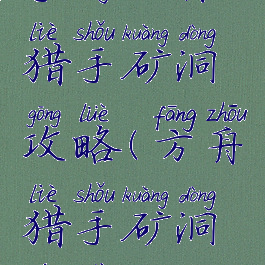 liè shǒu kuàng dòng
猎手矿洞
gōng lüè fāng zhōu
攻略(方舟
liè shǒu kuàng dòng
猎手矿洞